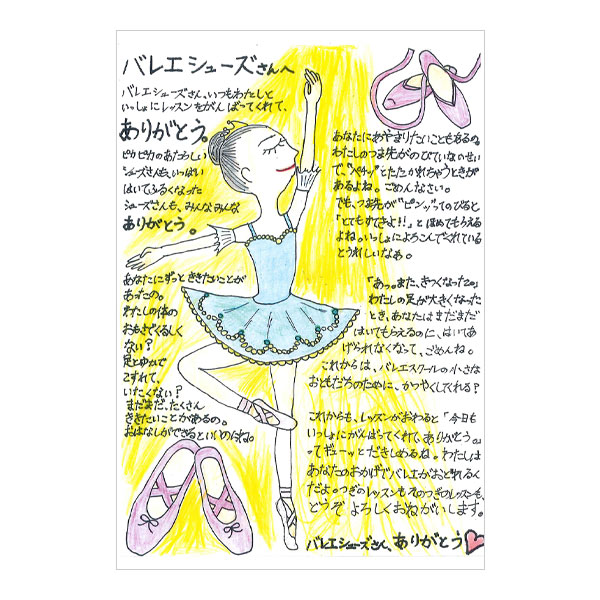 バレエシューズさんへ
バレエシューズさん、いつもわたしと
いっしょにレッスンをがんばってくれて、
ありがとう。
ピカピカのあたらしい
シューズさんも、いっぱい
はいてふるくなった
シューズさんも、みんなみんな
ありがとう。
あなたにずっとききたいことが
あったの。
わたしの体の
おもさでくるしく
ない?
足とゆかで
こすれて、
いたくない?
まだまだ、たくさん
ききたいことがあるの。
おはなしができるといいのにね。
あなたにあやまりたいこともあるの。
わたしのつま先がのびていないせい
で、"ペチッ"とたたかれちゃうときが
あるよね。ごめんなさい。
でも、つま先が"ピンッ"ってのびると
「とてもすてきよ!!」とほめてもらえる
よね。いっしょによろこんでくれている
とうれしいなぁ。
「あっ。また、きつくなった。」
わたしの足が大きくなった
とき、あなたはまだまだ
はいてもらえるのに、はいてあ
げられなくなって、ごめんね。
これからは、バレエスクールの小さな
おともだちのために、かつやくしてくれる?
これからも、レッスンがおわると「今日も
いっしょにがんばってくれて、ありがとう。」
ってギューッとだきしめるね。わたしは
あなたのおかげでバレエがおどれるく
だよ。つぎのレッスンもそのつぎのレッスンも、
どうぞよろしくおねがいします。
バレエシューズさん、ありがとう